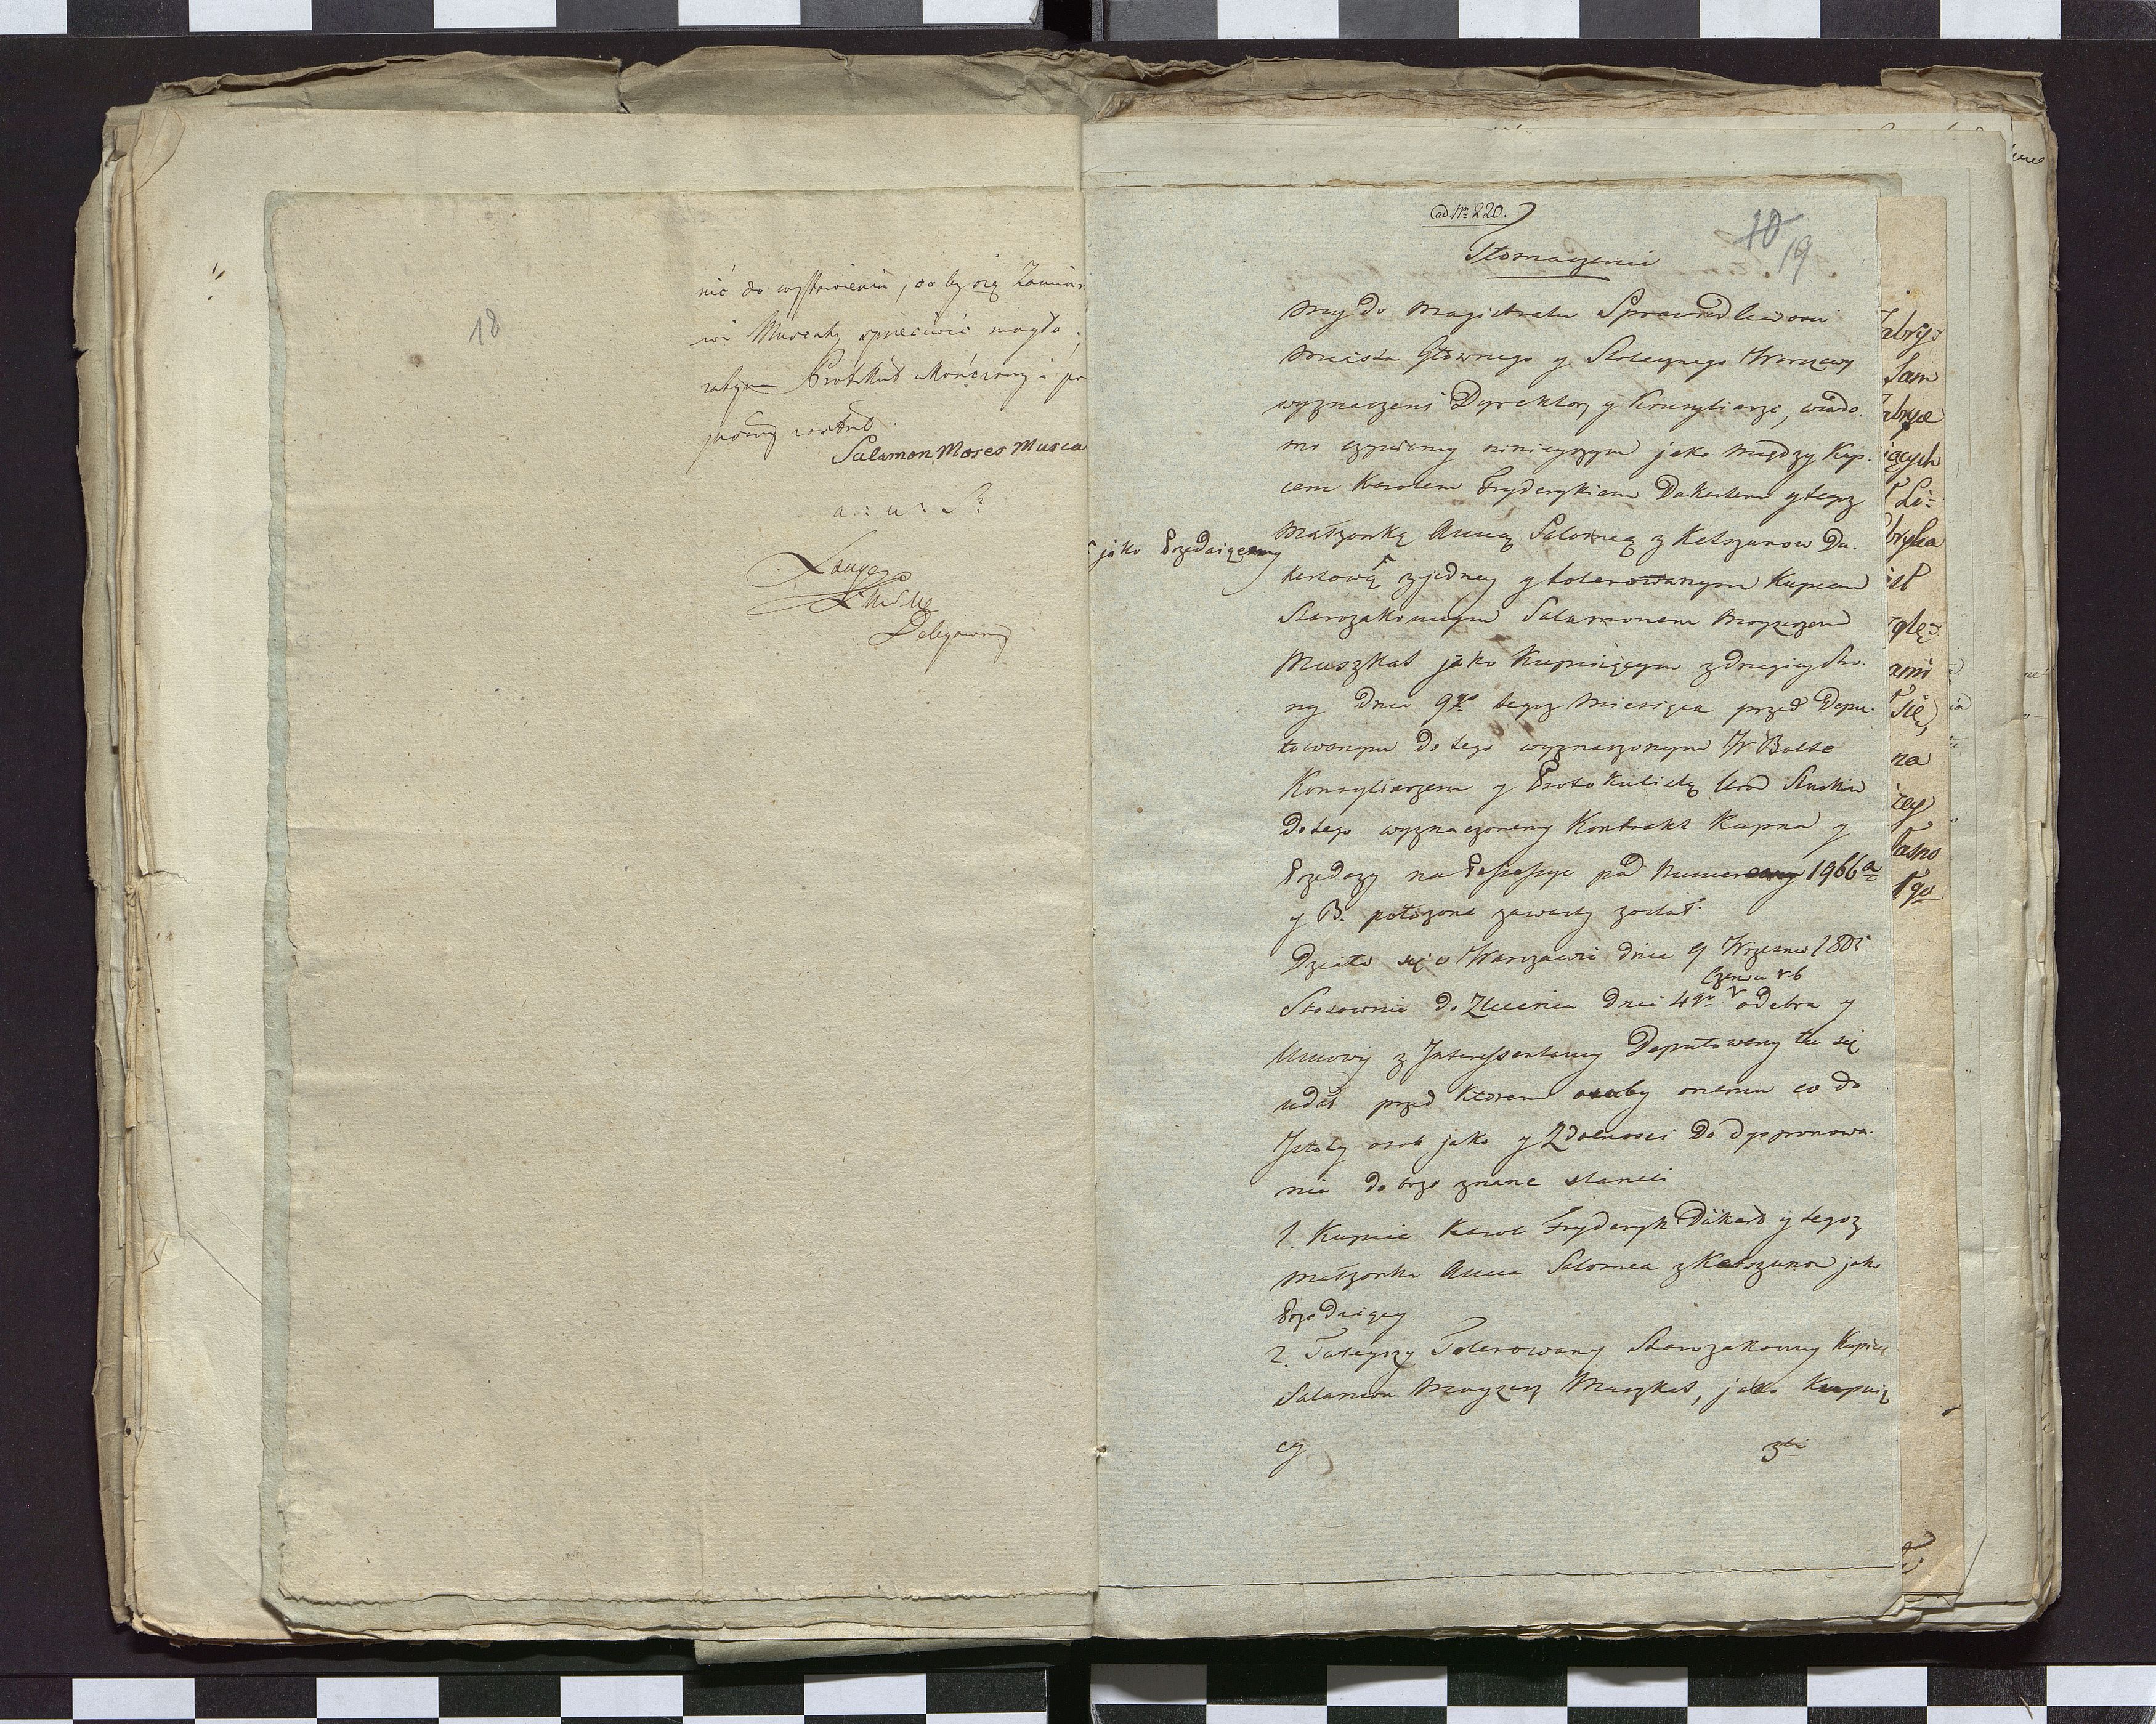 18
nić do wystawienia, co by się Zamiar
wi Muszkaty sprzeciwić mogło;
zatym Protokuł ukończony i po
pisany został.
Salamon Moses Musca
a: u: S:
Lange
Delegowany
ad Nro 220.
10 19
Tłomaczenie
My do Magistratu Sprawiedliwości
Miasta Głównego y Stołecznego Warszawy
wyznaczeni Dyrektor y Konsyliarze, wiado-
mo czyniemy ninieyszym jako między Kup-
cem Karolem Fryderykiem Dakertem y tegoż
Małżonką Anną Salomeą z Ketszunow Da-
jako Przedaiącemy
kertową z jedney y tolerowanym Kupcem
Starozakonnym Salamonem Moyzeszem
Muszkat jako Kupuiącym z drugiey stro-
ny dnia 9go tegoż Miesiąca przed Depu-
towanym do tego wyznaczonym W Bolte
Konsyliarzem y Protokulistą Urod
do tego wyznaczonemy Kontrakt Kupna y
Przedaży na Possessye pod Numerem 1966 a
y B. położone zawarty został.
Działo się w Warszawie dnia 9 Wrzesnia 1805
Czerwca r b
Stosownie do Zlecenia dnia 4go odebra y
Umowy z Interessentamy Deputowany tu się
udał przed Ktorem osoby onemu co do
Istoty osob jako y Zdolności do dysponowa-
nia dobrze znane staneli
1. Kupiec Karol Fryderyk Däkert y tegoż
Małżonka Anna Salomea z Ketszunow jako
Przedaiący
2. Tuteyszy Tolerowany Starozakonny Kupiec
Salamon Moyzesz Muszkat, jako Kupuią
cy 3tio
abry-
Sam
abryce
iących
Li-
bryka
glę-
ami
się,
na
żey
asno
go